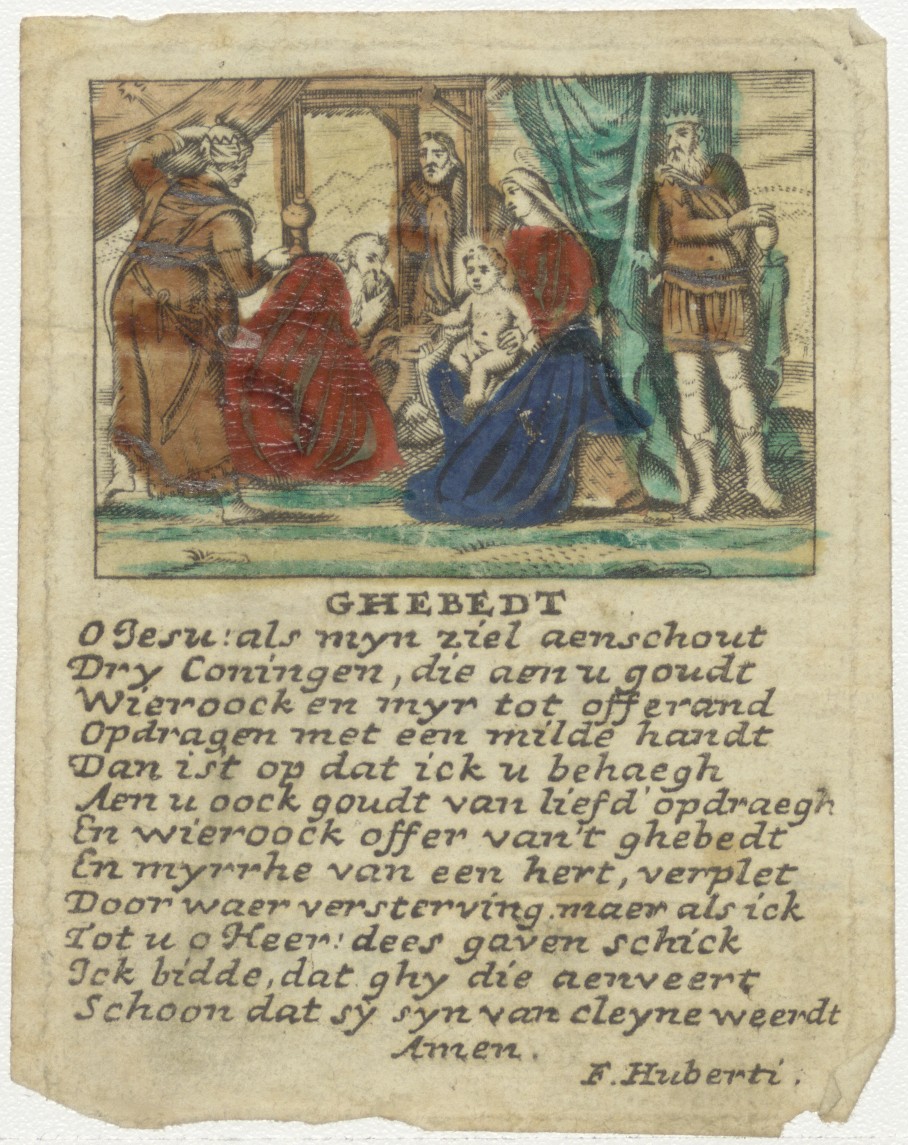 GHEBEDT
O Jesu! als myn ziel aenschout
Dry Coningen, die aen u goudt
Wieroock en myr tot offerand
Opdragen met een milde handt
Dan ist op dat ick u behaegh
Aen u oock goudt van liefd' opdraegh
En wieroock offer van't ghebedt
En myrrhe van een hert, verplet
Door waer versterving. maer als ick
Tot u o Heer! dees gaven schick
Ick bidde, dat ghy die aenveert
Schoon dat sÿ syn van cleyne weerdt
Amen.
F. Huberti.